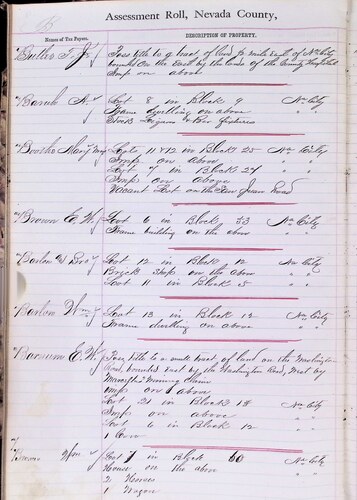 Assessment Roll, Nevada County,
Names of Tax Payers.
DESCRIPTION OF PROPERTY.
Butler T. J. Poss title to a tract of land ½ mile East of Na City
bounded on the East by the lands of the County Hospital
Imp on above
Lot 8 in Block 9 Na City
Frame dwelling on above " "
Stock Liquors & Bar fixtures
Lots 11 & 12 in Block 25 Na City
Imps on above " "
Lot 7 in Block 27 " "
Imps on above " "
Vacant Lot on the San Juan Road
Brown E. W. Lot 6 in Block 33 Na City
Frame building on the abov " "
Barlow & Bro Lot 12 in Block 12 Na City
Brick Imp on the abov " "
Lot 11 in Block 5 " "
Barlow Wm Lot 13 in Block 12 Na City
Frame dwelling on above " "
Barnum E. W. Poss title to a small tract of land on the Washington
Road, bounded East by the Washington Road, West by
Mining Claim
Imps on above
Lot 21 in Block 18 Na City
Imps on above " "
Lot 6 in Block 12 " "
1 Cow
Wm Lot 1 in Block 60 Na City
House on the abov " "
2 Horses
1 Wagon